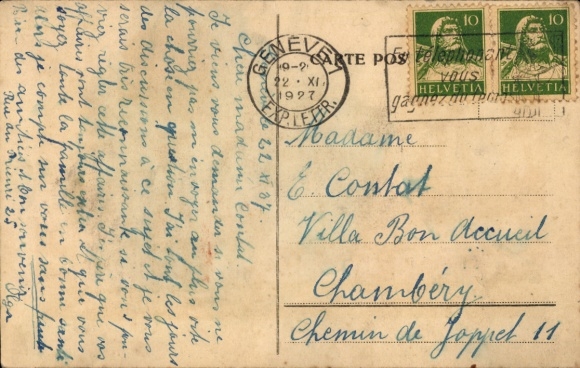 Genève 22 XI 27.
Chère madame Contat
Je viens vous demander si vous ne
pourriez pas m'envoyer au plus vite
la chose en question. J'ai tous les jours
des discussions à ce sujet et je vous
serais très reconnaissante si vous pu-
viez régler cette affaire. J'espère que vos
affaires vont toujours bien et que vous
soyez toute la famille en bonne santé
Ainsi je compte sur vous sans faute
Bien des amitiés bon souvenir
Olga
Rue du Prieuré 25
GENÈVE 1
22 · XI
1927
EXP. LETTR.
CARTE POS
En téléphonant
vous
gagnez du temps
10
HELVETIA
10
HELVETIA
Madame
E. Contat
Villa Bon Accueil
Chambéry
Chemin de Joppet 11